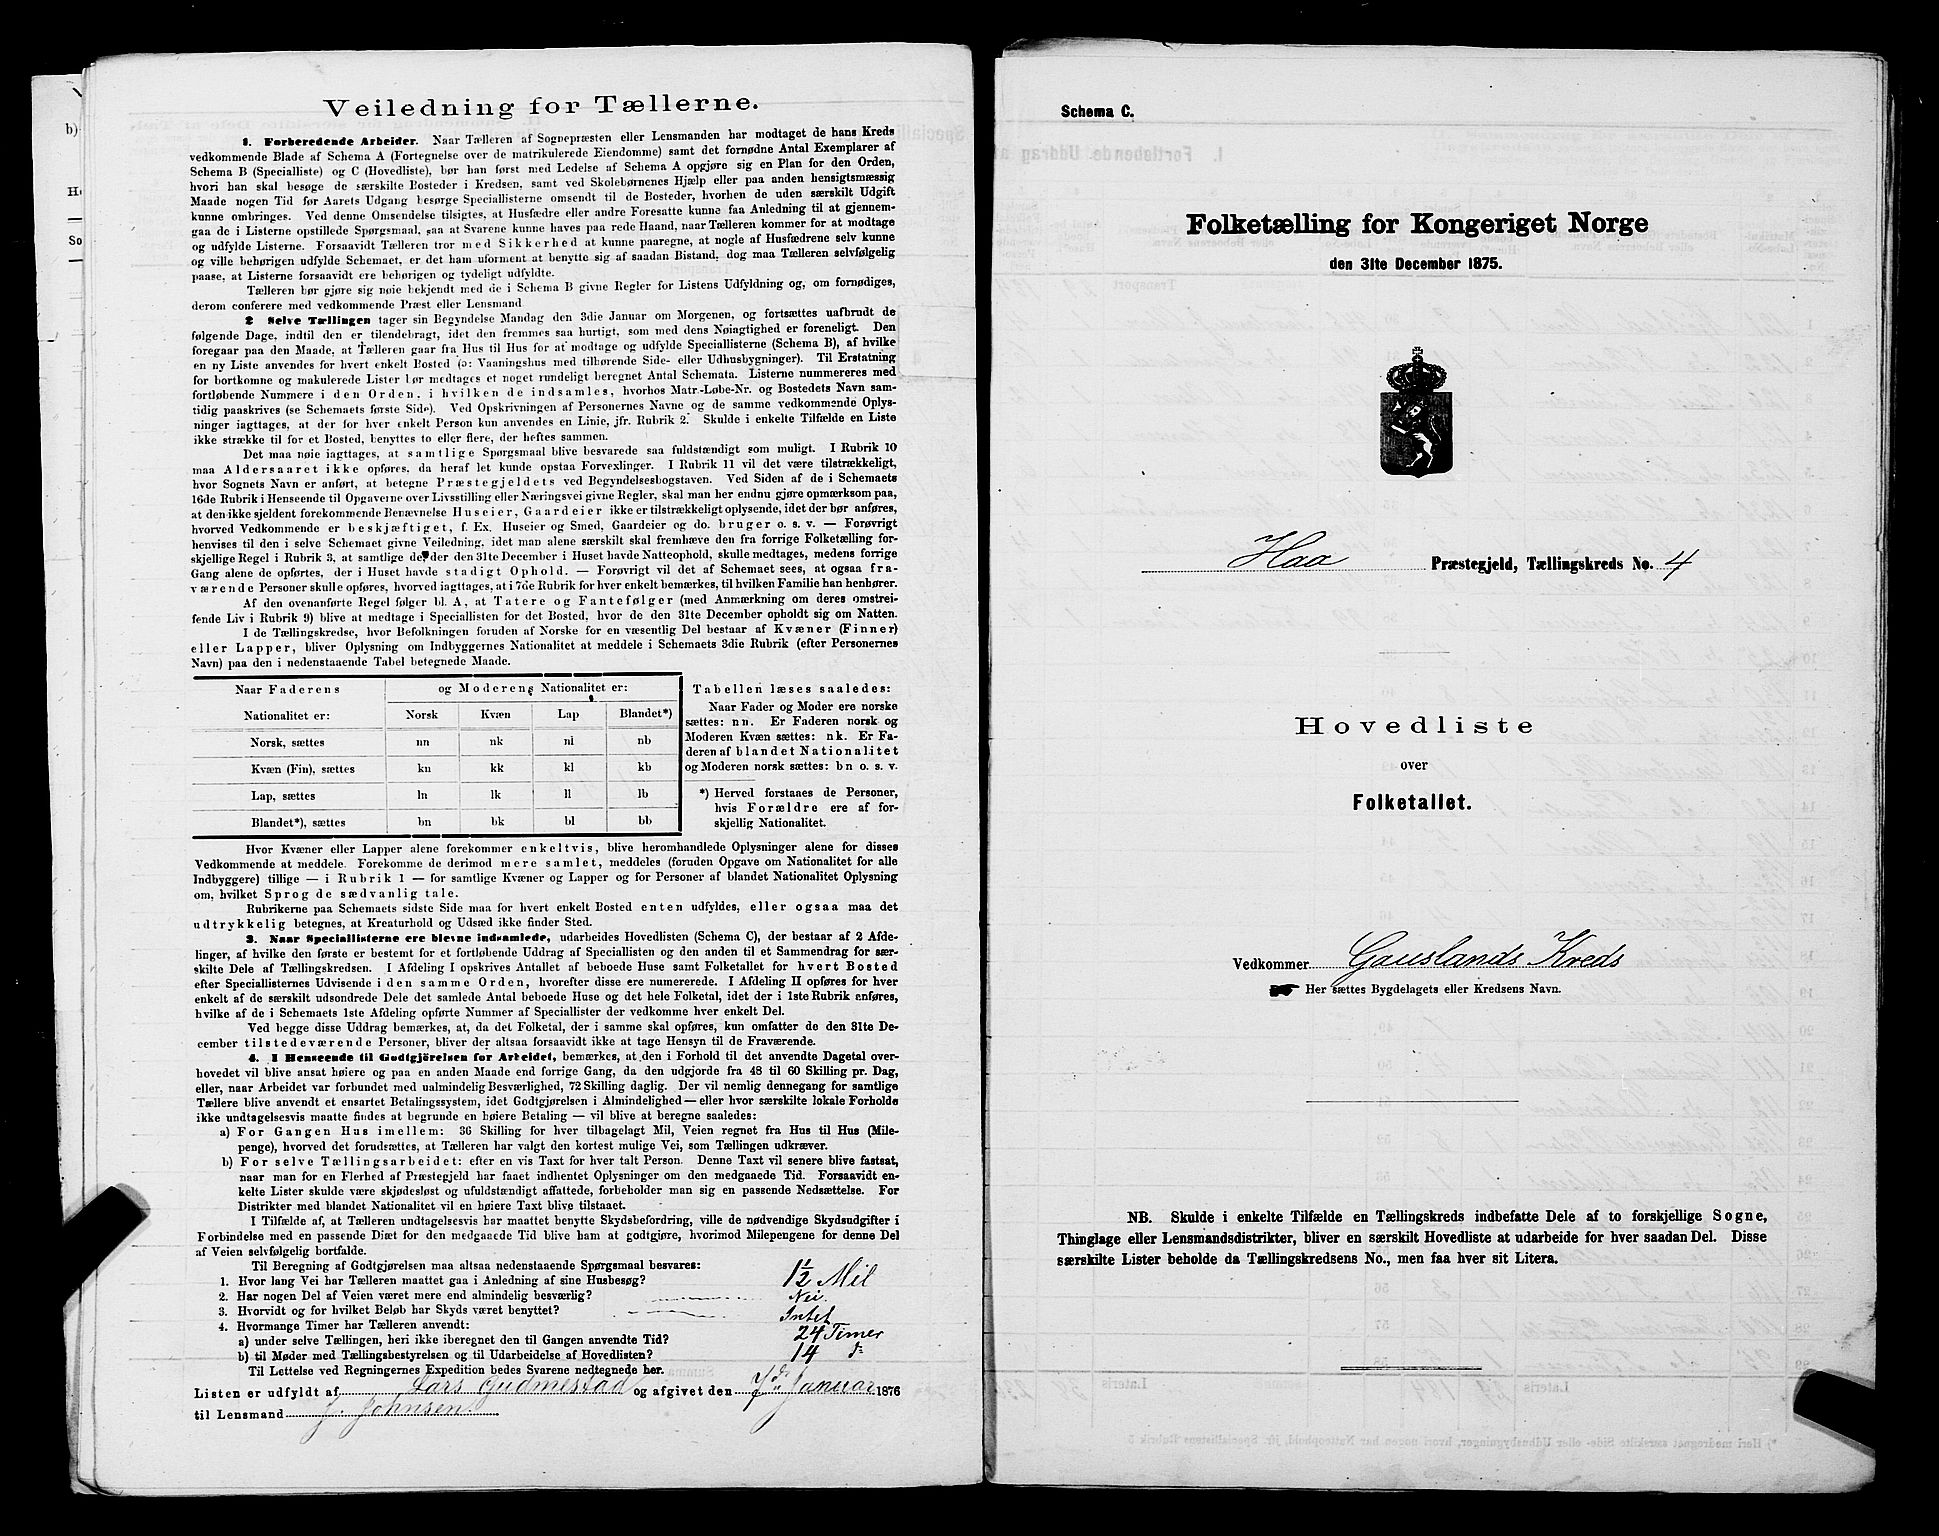 Veiledning for Tællerne.
1. Forberedende Arbeider. Naar Tælleren af Sognepræsten eller Lensmanden har modtaget de hans Kreds
vedkommende Blade af Schema A (Fortegnelse over de matrikulerede Eiendomme) samt det fornødne Antal Exemplarer af
Schema B (Specialliste) og C (Hovedliste), bør han først med Ledelse af Schema A opgjøre sig en Plan for den Orden,
hvori han skal besøge de særskilte Bosteder i Kredsen, samt ved Skolebørnenes Hjælp eller paa anden hensigtsmæssig
Maade nogen Tid før Aarets Udgang besørge Speciallisterne omsendt til de Bosteder, hvorhen de uden særskilt Udgift
kunne ombringes. Ved denne Omsendelse tilsigtes, at Husfædre eller andre Foresatte kunne faa Anledning til at gjennem-
gaa de i Listerne opstillede Spørgsmaal, saa at Svarene kunne haves paa rede Haand, naar Tælleren kommer for at modtage
og udfylde Listerne. Forsaavidt Tælleren tror med Sikkerhed at kunne paaregne, at nogle af Husfædrene selv kunne
og ville behørigen udfylde Schemaet, er det ham uforment at benytte sig af saadan Bistand, dog maa Tælleren selvfølgelig
paase, at Listerne forsaavidt ere behørigen og tydeligt udfyldte.
Tælleren bør gjøre sig nøie bekjendt med de i Schema B givne Regler for Listens Udfyldning og, om fornødiges,
derom conferere med vedkommende Præst eller Lensmand
2 Selve Tællingen tager sin Begyndelse Mandag den 3die Januar om Morgenen, og fortsættes uafbrudt de
følgende Dage, indtil den er tilendebragt, idet den fremmes saa hurtigt, som med dens Nøiagtighed er foreneligt. Den
foregaar paa den Maade, at Tælleren gaar fra Hus til Hus for at modtage og udfylde Speciallisterne (Schema B), af hvilke
en ny Liste anvendes for hvert enkelt Bosted (ɔ: Vaaningshus med tilhørende Side- eller Udhusbygninger). Til Erstatning
for bortkomne og makulerede Lister bør medtages et noget rundeligt beregnet Antal Schemata. Listerne nummereres med
fortløbende Nummere i den Orden, i hvilken de indsamles, hvorhos Matr.-Løbe-Nr. og Bostedets Navn sam-
tidig paaskrives (se Schemaets første Side). Ved Opskrivningen af Personernes Navne og de samme vedkommende Oplys-
ninger iagttages, at der for hver enkelt Person kun anvendes en Linie, jfr. Rubrik 2. Skulde i enkelte Tilfælde en Liste
ikke strække til for et Bosted, benyttes to eller flere, der heftes sammen.
Det maa nøie iagttages, at samtlige Spørgsmaal blive besvarede saa fuldstændigt som muligt. I Rubrik 10
maa Aldersaaret ikke opføres, da heraf let kunde opstaa Forvexlinger. I Rubrik 11 vil det være tilstrækkeligt,
hvor Sognets Navn er anført, at betegne Præstegjeldets ved Begyndelsesbogstaven. Ved Siden af de i Schemaets
16de Rubrik i Henseende til Opgaverne over Livsstilling eller Næringsvei givne Regler, skal man her endnu gjøre opmærksom paa,
at den ikke sjeldent forekommende Benævnelse Huseier, Gaardeier ikke er tilstrækkeligt oplysende, idet der bør anføres,
hvorved Vedkommende er beskjæftiget, f. Ex. Huseier og Smed, Gaardeier og do. bruger o. s. v. — Forøvrigt
henvises til den i selve Schemaet givne Veiledning, idet man alene særskilt skal fremhæve den fra forrige Folketælling for-
skjellige Regel i Rubrik 3, at samtlige de, der den 31te December i Huset havde Natteophold, skulle medtages, medens forrige
Gang alene de opførtes, der i Huset havde stadigt Ophold. — Forøvrigt vil det af Schemaet sees, at ogsaa fra-
værende Personer skulle opføres, hvorved iagttages, at i 7de Rubrik for hver enkelt bemærkes, til hvilken Familie han henhører.
Af den ovenanførte Regel følger bl. A, at Tatere og Fantefølger (med Anmærkning om deres omstrei-
fende Liv i Rubrik 9) blive at medtage i Speciallisten for det Bosted, hvor de den 31te December opholdt sig om Natten.
I de Tællingskredse, hvor Befolkningen foruden af Norske for en væsentlig Del bestaar af Kvæner (Finner)
eller Lapper, bliver Oplysning om Indbyggernes Nationalitet at meddele i Schemaets 3die Rubrik (efter Personernes
Navn) paa den i nedenstaaende Tabel betegnede Maade.
Naar Faderens og Moderens Nationalitet er:
Nationalitet er: Norsk Kvæn Lap Blandet*)
Norsk, sættes nn nk nl nb
Kvæn (Fin), sættes kn kk kl kb
Lap, sættes ln lk ll lb
Blandet*), sættes bn bk bl bb
Tabellen læses saaledes:
Naar Fader og Moder ere norske
sættes: nn. Er Faderen norsk og
Moderen Kvæn sættes: nk. Er Fa-
deren af blandet Nationalitet
og Moderen norsk sættes: bn o. s. v.
*) Herved forstaaes de Personer,
hvis Forældre ere af for-
skjellig Nationalitet.
Hvor Kvæner eller Lapper alene forekommer enkeltvis, blive heromhandlede Oplysninger alene for disses
Vedkommende at meddele. Forekomme de derimod mere samlet, meddeles (foruden Opgave om Nationalitet for alle
Indbyggere) tillige — i Rubrik 1 — for samtlige Kvæner og Lapper og for Personer af blandet Nationalitet Oplysning
om, hvilket Sprog de sædvanlig tale.
Rubrikerne paa Schemaets sidste Side maa for hvert enkelt Bosted enten udfyldes, eller ogsaa maa det
udtrykkelig betegnes, at Kreaturhold og Udsæd ikke finder Sted.
3. Naar Speciallisterne ere blevne indsamlede, udarbeides Hovedlisten (Schema C), der bestaar af 2 Afde-
linger, af hvilke den første er bestemt for et fortløbende Uddrag af Speciallisten og den anden til et Sammendrag for sær-
skilte Dele af Tællingskredsen. I Afdeling I opskrives Antallet af beboede Huse samt Folketallet for hvert Bosted
efter Speciallisternes Udvisende i den samme Orden, hvorefter disse ere numererede. I Afdeling II opføres for hver
enkelt af de særskilt udsondrede Dele det samlede Antal beboede Huse og det hele Folketal, idet der i 1ste Rubrik anføres,
hvilke af de i Schemaets 1ste Afdeling opførte Nummer af Speciallister der vedkomme hver enkelt Del.
Ved begge disse Uddrag bemærkes, at, da det Folketal, der i samme skal opføres, kun omfatter de den 31te De-
cember tilstedeværende Personer, bliver der altsaa forsaavidt ikke at tage Hensyn til de Fraværende.
4. I Henseende til Godtgjörelsen for Arbeidet, bemærkes, at den i Forhold til det anvendte Dagetal over-
hovedet vil blive ansat høiere og paa en anden Maade end forrige Gang, da den udgjorde fra 48 til 60 Skilling pr. Dag,
eller, naar Arbeidet var forbundet med ualmindelig Besværlighed, 72 Skilling daglig. Der vil nemlig dennegang for samtlige
Tællere blive anvendt et ensartet Betalingssystem, idet Godtgjørelsen i Almindelighed — eller hvor særskilte lokale Forholde
ikke undtagelsesvis maatte findes at begrunde en høiere Betaling — vil blive at beregne saaledes:
a) For Gangen Hus imellem: 36 Skilling for hver tilbagelagt Mil, Veien regnet fra Hus til Hus (Mile-
penge), hvorved det forudsættes, at Tælleren har valgt den kortest mulige Vei, som Tællingen udkræver.
b) For selve Tællingsarbeidet: efter en vis Taxt for hver talt Person. Denne Taxt vil senere blive fastsat,
naar man for en Flerhed af Præstegjeld har faaet indhentet Oplysninger om den medgaaede Tid. Forsaavidt en-
kelte Lister skulde være skjødesløst og ufuldstændigt affattede, forbeholder man sig en passende Nedsættelse. For
Distrikter med blandet Nationalitet vil en høiere Taxt blive tilstaaet.
I Tilfælde af, at Tælleren undtagelsesvis har maattet benytte Skydsbefordring, ville de nødvendige Skydsudgifter i
Forbindelse med en passende Diæt for den medgaaede Tid blive ham at godtgjøre, hvorimod Milepengene for denne Del
af Veien selvfølgelig bortfalde.
Til Beregning af Godtgjørelsen maa altsaa nedenstaaende Spørgsmaal besvares:
1. Hvor lang Vei har Tælleren maattet gaa i Anledning af sine Husbesøg? 1½ Mil
2. Har nogen Del af Veien været mere end almindelig besværlig? Nei.
3. Hvorvidt og for hvilket Beløb har Skyds været benyttet? Intet
4. Hvormange Timer har Tælleren anvendt:
a) under selve Tællingen, heri ikke iberegnet den til Gangen anvendte Tid? 24 Timer
b) til Møder med Tællingsbestyrelsen og til Udarbeidelse af Hovedlisten? 14 d=
Til Lettelse ved Regningernes Expedition bedes Svarene nedtegnede her.
Listen er udfyldt af Lars Gudmestad og afgivet den 7de Januar 1876
til Lensmand J. Johnsen.
Schema C.
Folketælling for Kongeriget Norge
den 31te December 1875.
Haa Præstegjeld, Tællingskreds No. 4
Hovedliste
over
Folketallet.
Vedkommer Gauslands Kreds
Her sættes Bygdelagets eller Kredsens Navn.
NB. Skulde i enkelte Tilfælde en Tællingskreds indbefatte Dele af to forskjellige Sogne,
Thinglage eller Lensmandsdistrikter, bliver en særskilt Hovedliste at udarbeide for hver saadan Del. Disse
særskilte Lister beholde da Tællingskredsens No., men faa hver sit Litera.